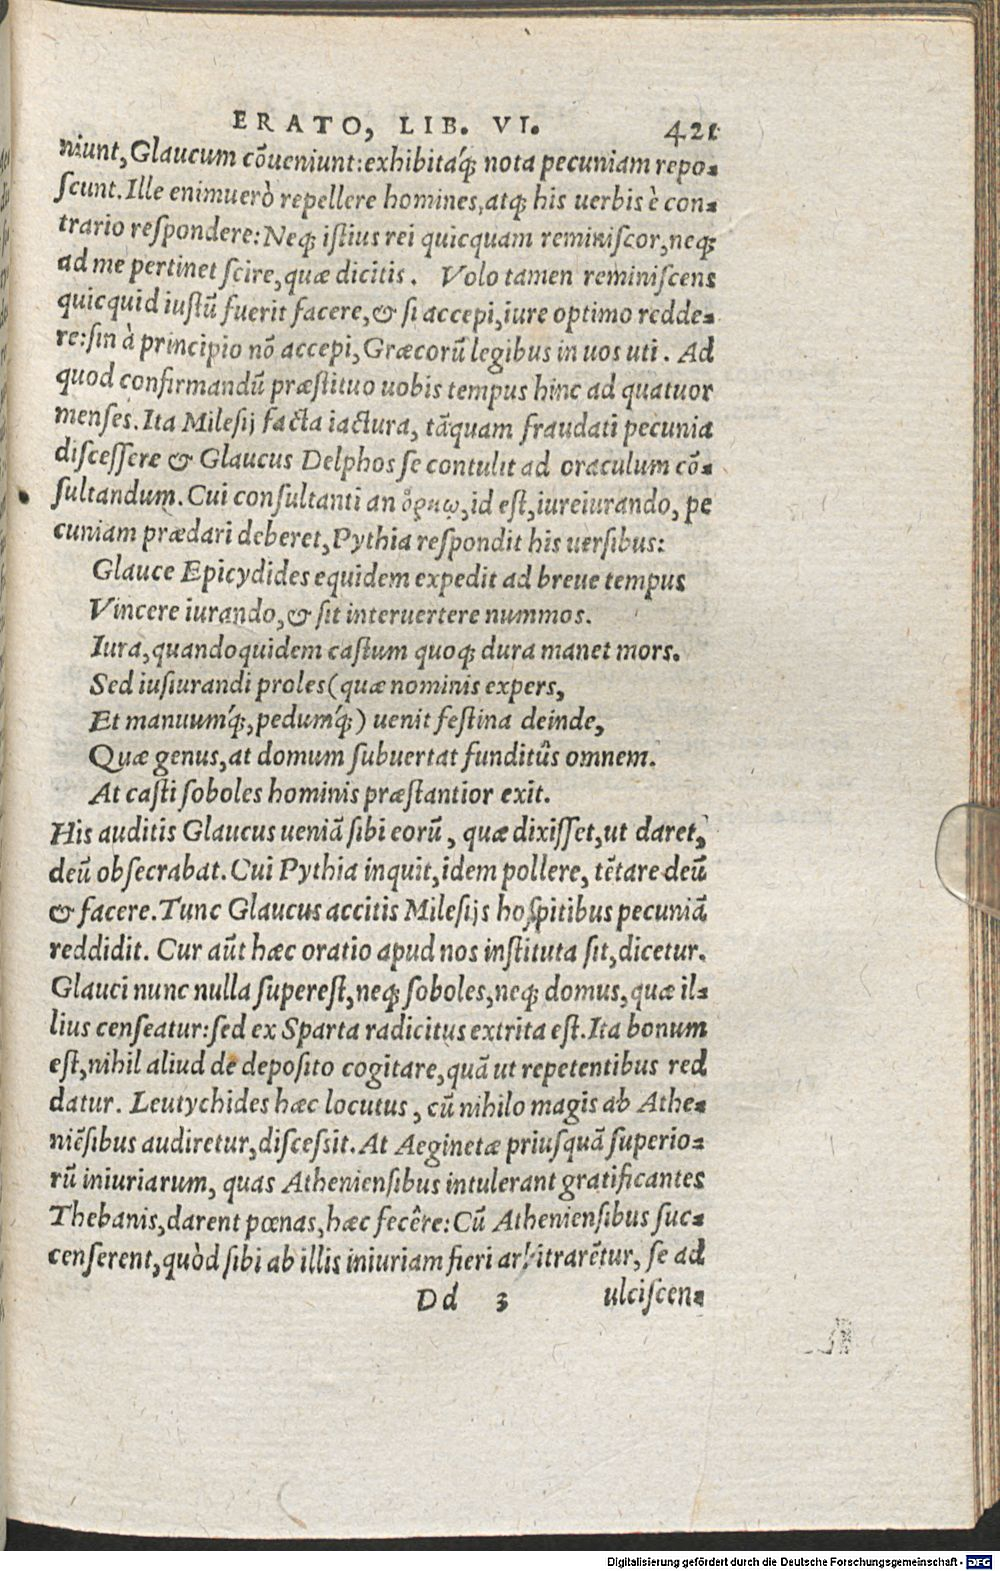 ERATO, LIB. VI. 421
niunt, Glaucum cõueniunt: exhibitaq́; nota pecuniam repo-
ſcunt. Ille enimuerò repellere homines, atq; his uerbis è con-
trario reſpondere: Neq; iſtius rei quicquam reminiſcor, neq;
ad me pertinet ſcire, quæ dicitis. Volo tamen reminiſcens
quicquid iuſtũ fuerit facere, & ſi accepi, iure optimo redde-
re: ſin à principio nõ accepi, Græcorũ legibus in uos uti. Ad
quod confirmandũ præſtituo uobis tempus hinc ad quatuor
menſes. Ita Mileſij facta iactura, tãquam fraudati pecunia
diſceſſere & Glaucus Delphos ſe contulit ad oraculum cõ-
ſultandum. Cui conſultanti an ὅρκῳ, id eſt, iureiurando, pe
cuniam prædari deberet, Pythia reſpondit his uerſibus:
Glauce Epicydides equidem expedit ad breue tempus
Vincere iurando, & ſit interuertere nummos.
Iura, quandoquidem caſtum quoq; dura manet mors.
Sed iuſiurandi proles (quæ nominis expers,
Et manuumq́;, pedumq́;) uenit feſtina deinde,
Quæ genus, at domum ſubuertat funditûs omnem.
At caſti ſoboles hominis præſtantior exit.
His auditis Glaucus ueniã ſibi eorũ, quæ dixiſſet, ut daret,
deũ obſecrabat. Cui Pythia inquit, idem pollere, tẽtare deũ
& facere. Tunc Glaucus accitis Mileſijs hoſpitibus pecuniã
reddidit. Cur aũt hæc oratio apud nos inſtituta ſit, dicetur.
Glauci nunc nulla ſupereſt, neq; ſoboles, neq; domus, quæ il-
lius cenſeatur: ſed ex Sparta radicitus extrita eſt. Ita bonum
eſt, nihil aliud de depoſito cogitare, quã ut repetentibus red
datur. Leutychides hæc locutus, cũ nihilo magis ab Athe-
niẽſibus audiretur, diſceſsit. At Aeginetæ priuſquã ſuperio-
rũ iniuriarum, quas Athenienſibus intulerant gratificantes
Thebanis, darent pœnas, hæc fecêre: Cũ Athenienſibus ſuc-
cenſerent, quòd ſibi ab illis iniuriam fieri arbitrarẽtur, ſe ad
Dd 3 ulciſcen-
Digitalisierung gefördert durch die Deutsche Forschungsgemeinschaft - DFG